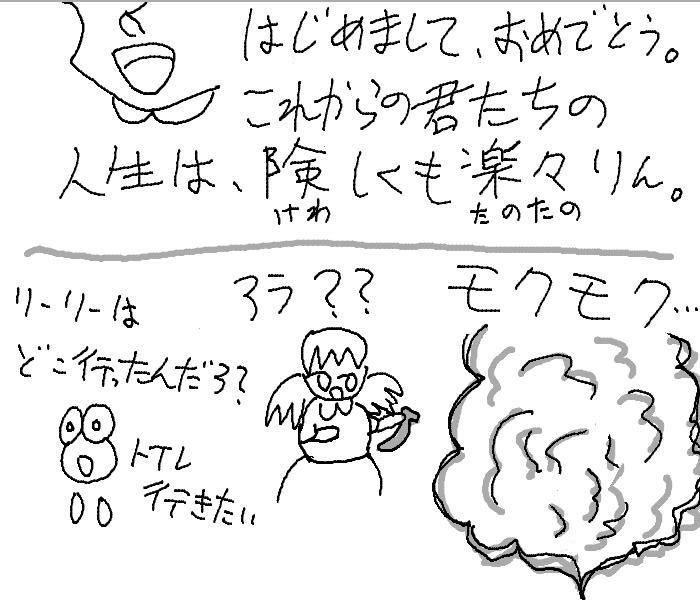 はじめまして、おめでとう。
これからの君たちの
人生は、険しくも楽々りん。
けわ
たのたの
リーリーは
どこ行ったんだろ?
ろラ??
モクモク…
トイレ
行きたい